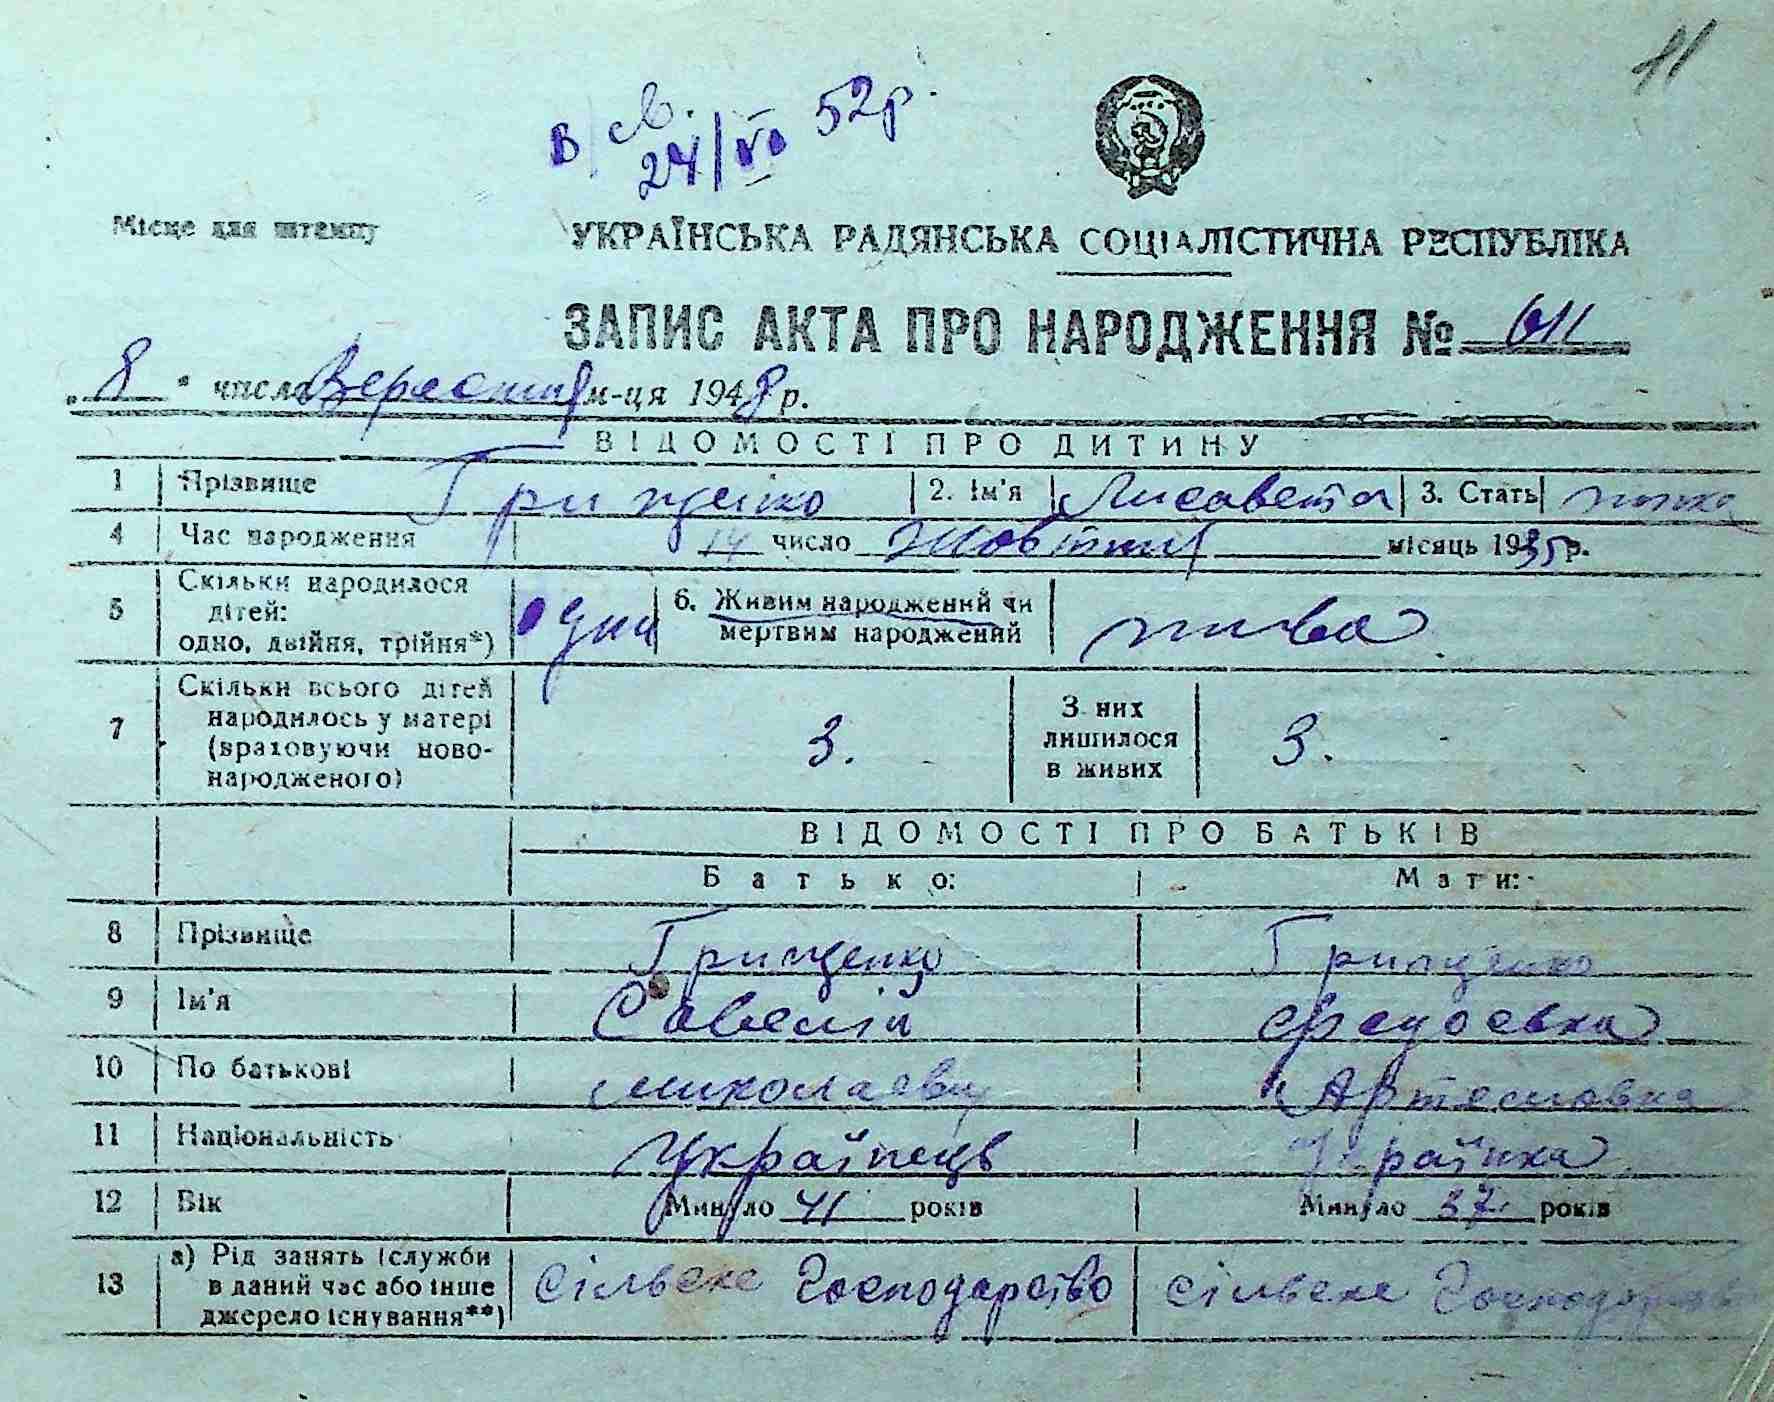 11
В/ св. 24/VI 52р.
Місце для штампу
УКРАЇНСЬКА РАДЯНСЬКА СОЦІАЛІСТИЧНА РЕСПУБЛІКА
ЗАПИС АКТА ПРО НАРОДЖЕННЯ № 611
„8" число Вересня м-ця 1948 р.
ВІДОМОСТІ ПРО ДИТИНУ
1 Прізвище Грищенко 2. Ім'я Лисавета 3. Стать жінка
4 Час народження 14 число Жовтня місяць 1935 р.
5 Скільки народилося дітей: одно, двійня, трійня*) 6. Живим народжений чи мертвим народжений жива
7 Скільки всього дітей народилось у матері (враховуючи новонародженого) 3. З них лишилося в живих 3.
ВІДОМОСТІ ПРО БАТЬКІВ
Батько: Мати:
8 Прізвище Грищенко Грищенко
9 Ім'я Савелій
10 По батькові Артемовна
11 Національність Українець Українка
12 Вік Минуло 41 років Минуло 37 років
13 а) Рід занять (служби в даний час або інше джерело існування**) Сільске Господарство Сільске Господарство